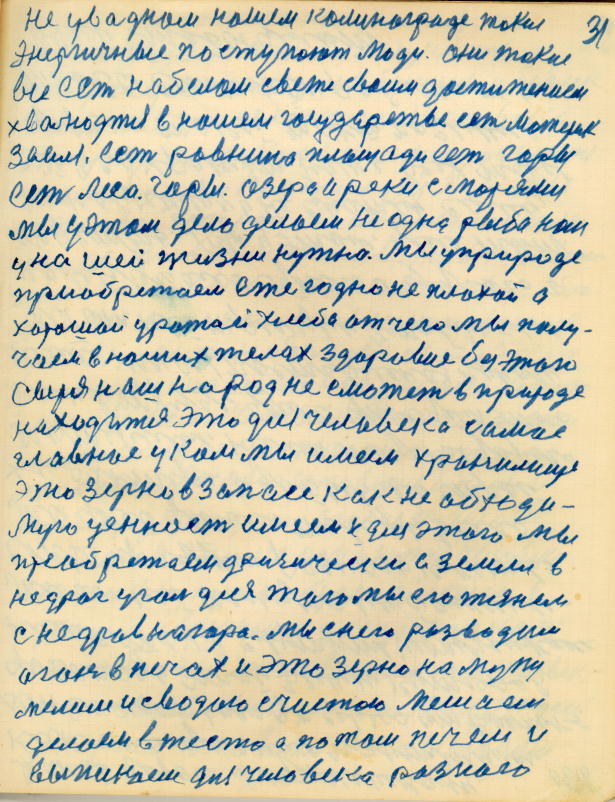 31
не ув адном нашем калинограде токие
энергичные поступоют люди. они токие
все ест на белом свете своим достижением
хвалюдтся в нашем государстве ест матерек
Земли. ест равнина площади ест горы
ест леса. горы. озера и реки с морями
мы у этом дело делаем не одна рыба нам
у на шей жизни нужна. мы у природе
приобретаем еже годно не плохой а
хорошой урожай хлеба от чего мы полу-
чаем в наших телах здоровие без этого
сырия наш народ не сможет в природе
находится это для человека самае
главное у ком мы имеем хранилище
это зерно в запасе как не обходи-
мую ценност имеем и для этого мы
преобретаем физически с земли в
недрог угол для этого мы его тянем
с недров на гора. мы с него розводим
огон в печах и это зерно на муку
мелим и с водою счистою мешаем
делаем в тесто а потом печем и
выпикаем для человека разного